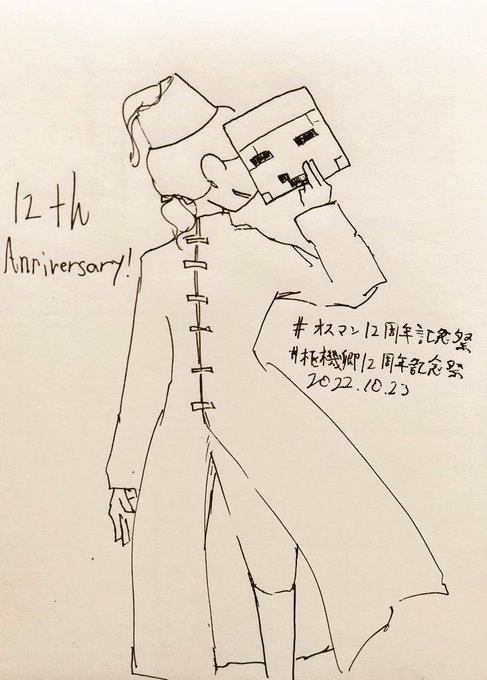 12th
Anniversary!
#オスマン12周年記念祭
#枢機卿12周年記念祭
2022.10.23